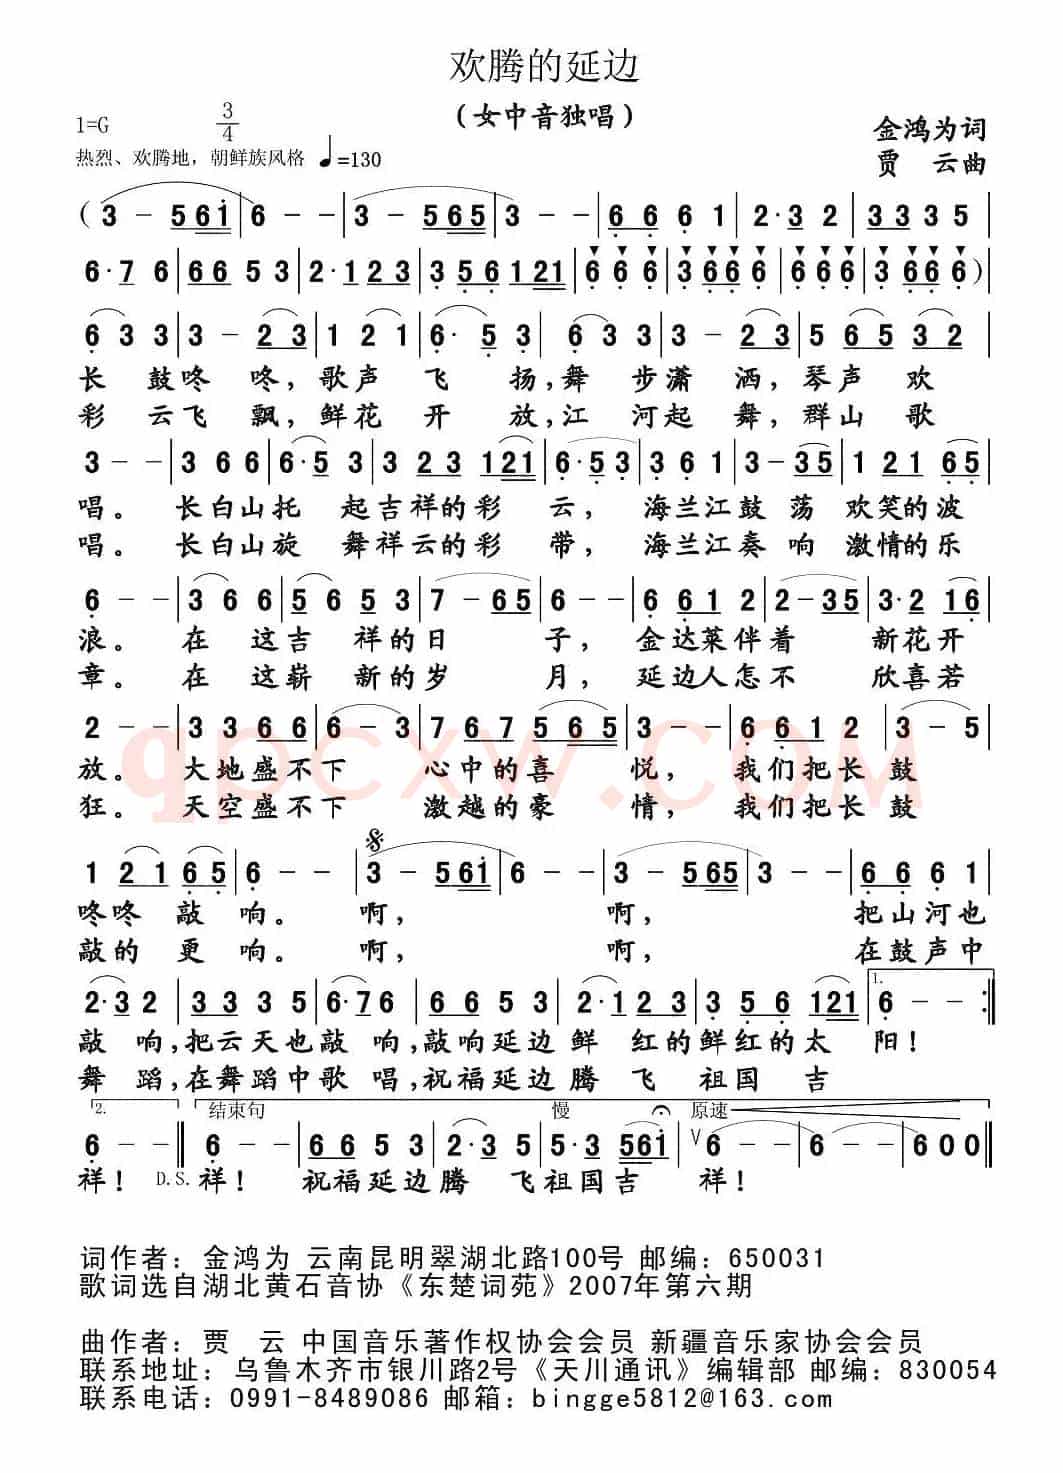 欢腾的延边
（女中音独唱）
1=G 3/4
金鸿为词
热烈、欢腾地，朝鲜族风格 ♩=130
贾 云曲
( 3 - 5 6 1 | 6 - - | 3 - 5 6 5 | 3 - - | 6 6 6 1 | 2· 3 2 | 3 3 3 5 |
6· 7 6 | 6 6 5 3 | 2· 1 2 3 | 3 5 6 1 2 1 | 6 6 6 | 3 6 6 6 | 6 6 6 | 3 6 6 6 ) |
6 3 3 | 3 - 2 3 | 1 2 1 | 6· 5 3 | 6 3 3 | 3 - 2 3 | 5 6 5 3 2 |
长 鼓咚 咚，歌声 飞 扬，舞 步潇 洒，琴声 欢
彩 云飞 飘，鲜花 开 放，江 河起 舞，群山 歌
3 - - | 3 6 6 | 6· 5 3 | 3 2 3 1 2 1 | 6· 5 3 | 3 6 1 | 3 - 3 5 | 1 2 1 6 5 |
唱。 长白山托 起吉祥的彩 云， 海兰江鼓 荡 欢笑的波
唱。 长白山旋 舞祥云的彩 带， 海兰江奏 响 激情的乐
6 - - | 3 6 6 | 5 6 5 3 | 7 - 6 5 | 6 - - | 6 6 1 2 | 2 - 3 5 | 3· 2 1 6 |
浪。 在 这吉 祥的日 子， 金达莱伴着 新花开
章。 在 这崭 新的岁 月， 延边人怎不 欣喜若
2 - - | 3 3 6 6 | 6 - 3 | 7 6 7 5 6 5 | 3 - - | 6 6 1 2 | 3 - 5 |
放。 大地盛不下 心中的喜 悦， 我们把长 鼓
狂。 天空盛不下 激越的豪 情， 我们把长 鼓
qpcxw.COM
1 2 1 6 5 | 6 - - | 3 - 5 6 1 | 6 - - | 3 - 5 6 5 | 3 - - | 6 6 6 1 |
咚咚 敲 响。 啊， 啊， 把山河也
敲的 更 响。 啊， 啊， 在鼓声中
1.
2· 3 2 | 3 3 3 5 | 6· 7 6 | 6 6 5 3 | 2· 1 2 3 | 3 5 6 1 2 1 | 6 - - :||
敲 响，把云天也敲 响，敲响延边鲜 红的鲜红的太 阳！
舞 蹈，在舞蹈中歌 唱，祝福延边腾 飞 祖国 吉
2. 结束句 慢 原速
6 - - || 6 - - | 6 6 5 3 | 2· 3 5 | 5· 3 5 6 1 | V 6 - - | 6 - - | 6 0 0 ||
祥！ D.S. 祥！ 祝福延边腾 飞祖国吉 祥！
词作者：金鸿为 云南昆明翠湖北路100号 邮编：650031
歌词选自湖北黄石音协《东楚词苑》2007年第六期
曲作者：贾 云 中国音乐著作权协会会员 新疆音乐家协会会员
联系地址：乌鲁木齐市银川路2号《天川通讯》编辑部 邮编：830054
联系电话：0991-8489086 邮箱：bingge5812@163.com